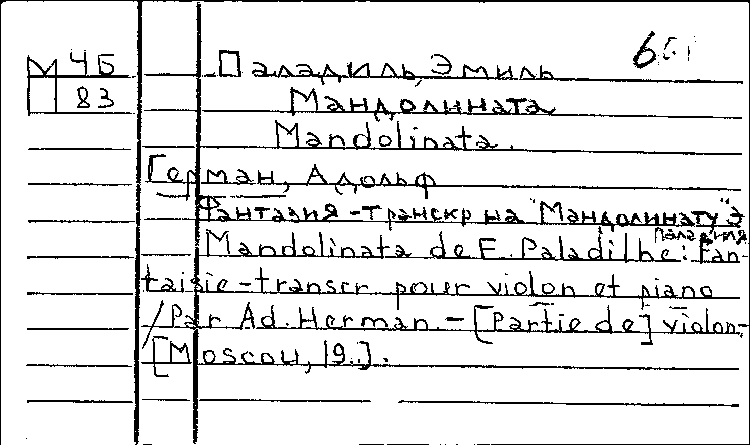 М 4Б Паладиль, Эмиль
83 Мандолината
Mandolinata.
Герман, Адольф
Фантазия-транскр на "Мандолинату" Э
Паладиля
Mandolinata de E. Paladilhe: Fan-
taisie-transcr. pour violon et piano
/Par Ad. Herman. - [Partie de] violon-
[Moscou, 19..].